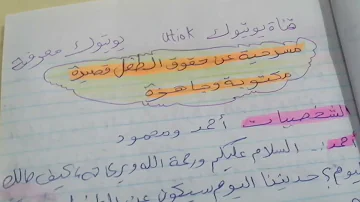 قناة يوتيوك utiok يوتيوك معرفة
مسرحية عن حقوق الطفل قصيرة
مكتوبة وجاهزة
الشخصيات أحمد ومحمود
أحمد: السلام عليكم ورحمة الله وبركاته كيف حالك
اليوم؟ حديثنا اليوم سيكون عن